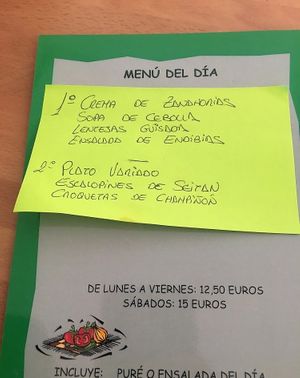 MENÚ DEL DÍA
1º CREMA DE ZANAHORIAS
SOPA DE CEBOLLA
LENTEJAS GUISADAS
ENSALADA DE ENDIBIAS
2º PLATO VARIADO
ESCALOPINES DE SEITAN
CROQUETAS DE CHAMPIÑON
DE LUNES A VIERNES: 12,50 EUROS
SÁBADOS: 15 EUROS
INCLUYE: PURÉ O ENSALADA DEL DÍA